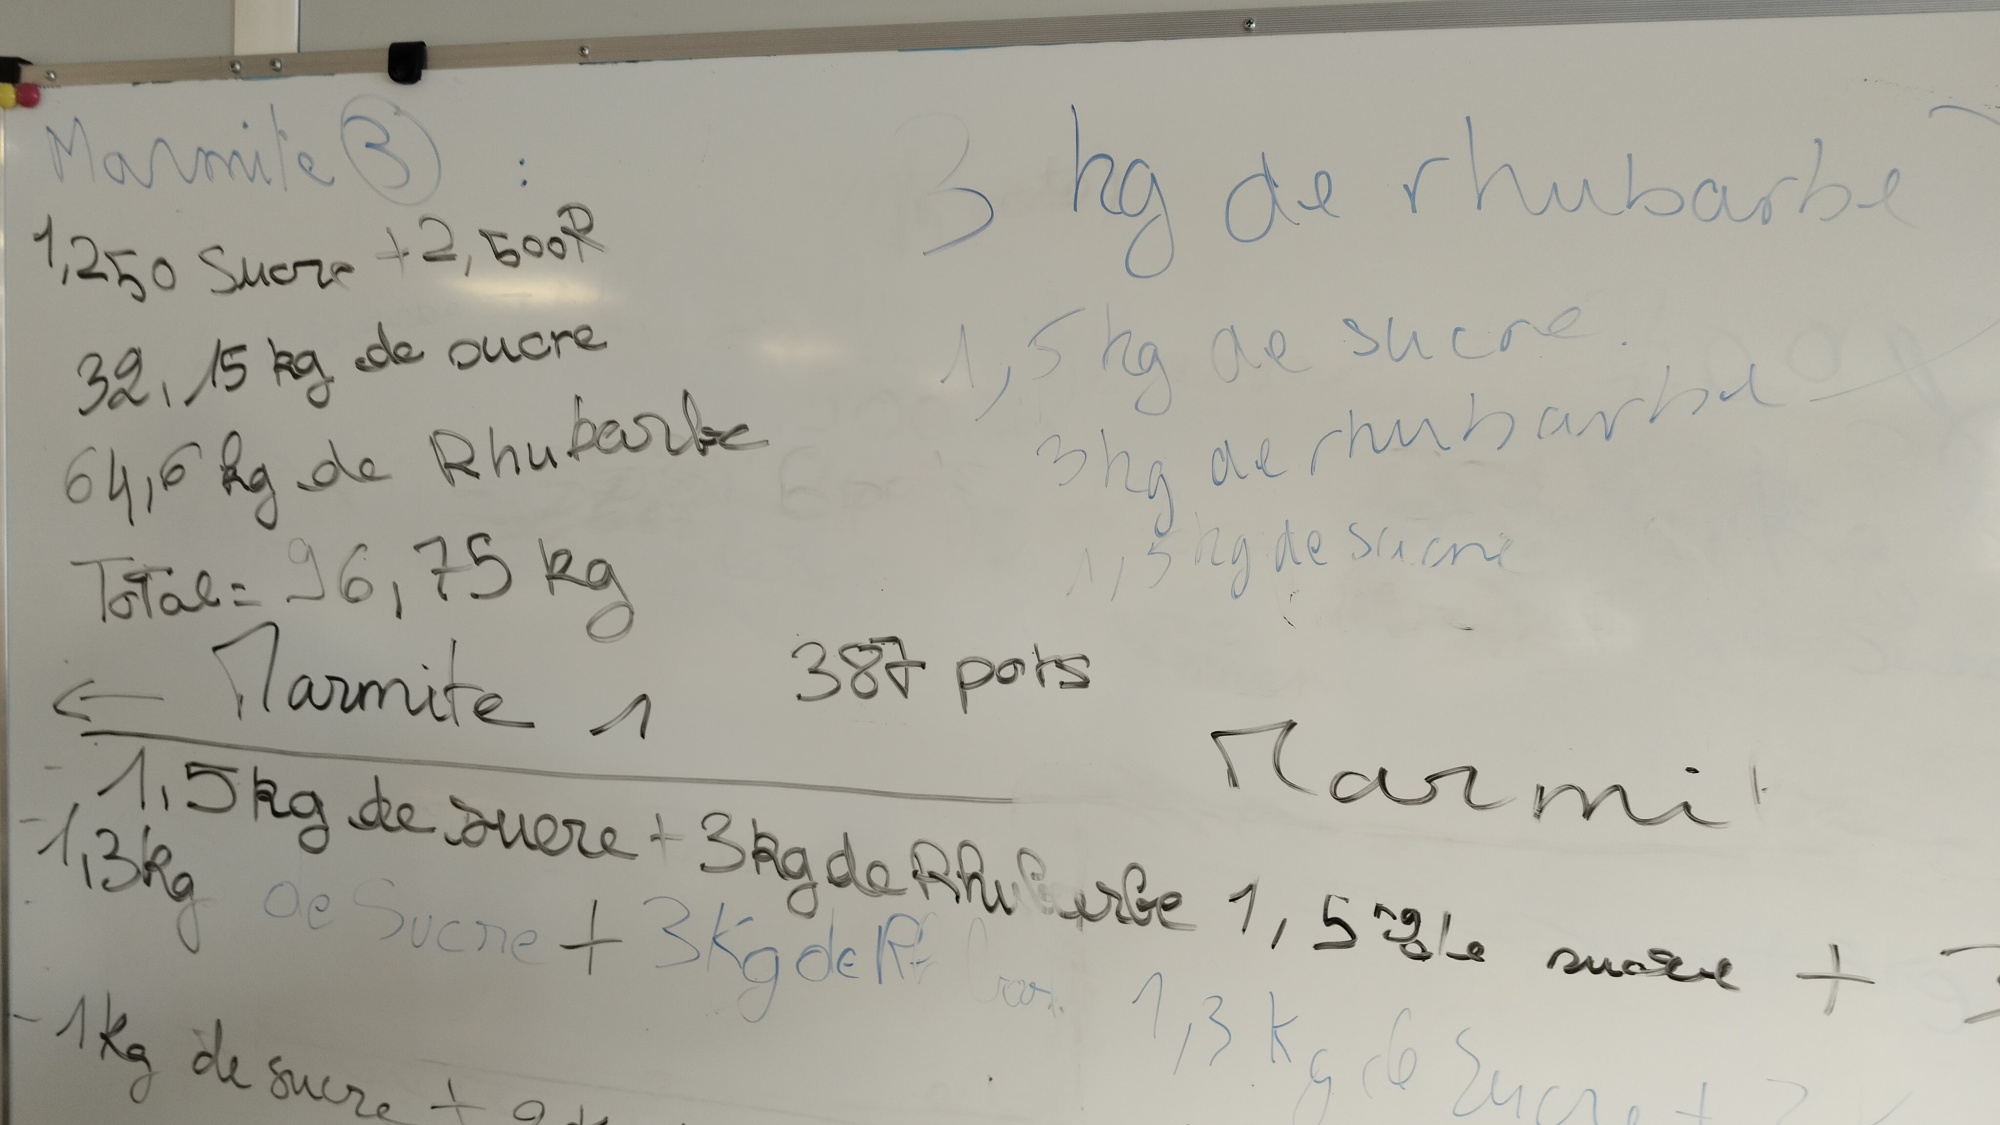 Marmite 3 :
1,250 Sucre + 2,500 R
32,15 kg de sucre
64,6 kg de Rhubarbe
Total = 96,75 kg
3 kg de rhubarbe
1,5 kg de sucre
3 kg de rhubarbe
1,5 kg de sucre
← Marmite 1
387 pots
- 1,5 kg de sucre + 3 kg de Rhubarbe
- 1,3 kg de Sucre + 3 Kg de
- 1 kg de sucre +
Marmit
1,5 kg de sucre + 3
1,3 Kg de Sucre +